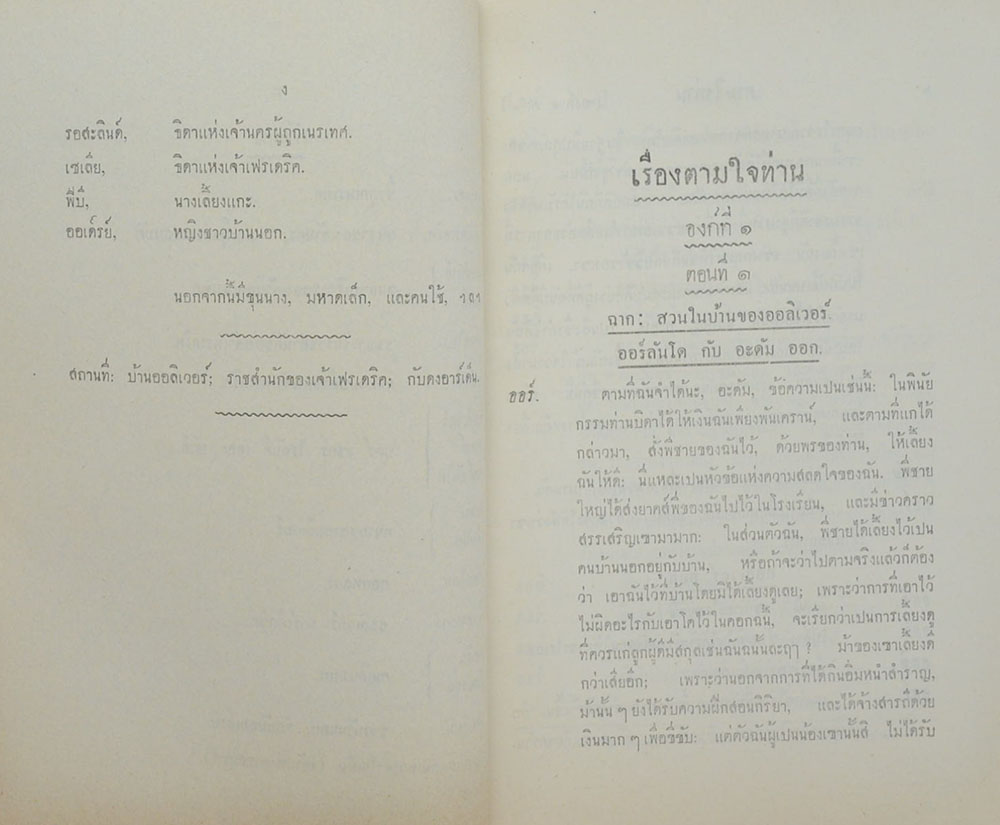 ง
รอสะลินด์, ธิดาแห่งเจ้านครผู้ถูกเนรเทศ.
เซเลีย, ธิดาแห่งเจ้าเฟรเดริค.
ฟีบี, นางเลี้ยงแกะ.
ออเด็รย์, หญิงชาวบ้านนอก.
นอกจากนี้มีขุนนาง, มหาดเล็ก, และคนใช้, ฯลฯ
สถานที่: บ้านออลิเวอร์; ราชสำนักของเจ้าเฟรเดริค; กับดงอาร์เด็น.
เรื่องตามใจท่าน
องก์ที่ ๑
ตอนที่ ๑
ฉาก: สวนในบ้านของออลิเวอร์
ออร์ลันโด กับ อะดัม ออก.
ออร์. ตามที่ฉันจำได้นะ, อะดัม, ข้อความเปนเช่นนี้: ในพินัย
กรรมท่านบิดาได้ให้เงินฉันเพียงพันเคราน์, และตามที่แกได้
กล่าวมา, สั่งพี่ชายของฉันไว้, ด้วยพรของท่าน, ให้เลี้ยง
ฉันให้ดี: นี่แหละเปนหัวข้อแห่งความสลดใจของฉัน. พี่ชาย
ใหญ่ได้ส่งยาคส์พี่ของฉันไปไว้ในโรงเรียน, และมีข่าวคราว
สรรเสริญเขามามาก: ในส่วนตัวฉัน, พี่ชายได้เลี้ยงไว้เปน
คนบ้านนอกอยู่กับบ้าน, หรือถ้าจะว่าไปตามจริงแล้วก็ต้อง
ว่า เอาฉันไว้ที่บ้านโดยมิได้เลี้ยงดูเลย; เพราะว่าการที่เอาไว้
ไม่ผิดอะไรกับเอาโคไว้ในคอกฉนี้, จะเรียกว่าเปนการเลี้ยงดู
ที่ควรแก่ลูกผู้ดีมีสกุลเช่นฉันฉนั้นละฤๅ? ม้าของเขาเลี้ยงดี
กว่าเสียอีก; เพราะว่านอกจากการที่ได้กินอิ่มหนำสำราญ,
ม้านั้น ๆ ยังได้รับความฝึกสอนกิริยา, และได้จ้างสารถีด้วย
เงินมาก ๆ เพื่อขี่ขับ: แต่ตัวฉันผู้เปนน้องเขานั้นสิ ไม่ได้รับ